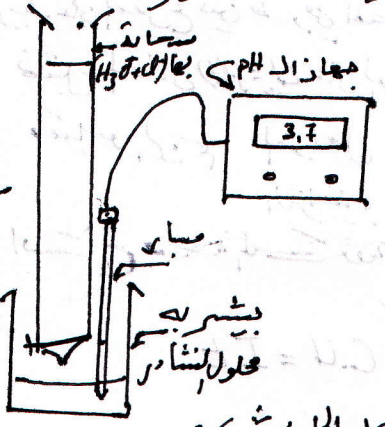 سحاحة
بها (H₃O⁺+Cl⁻)
جهاز الـ pH
3,7
مسبار
بيشر به
محلول النشادر